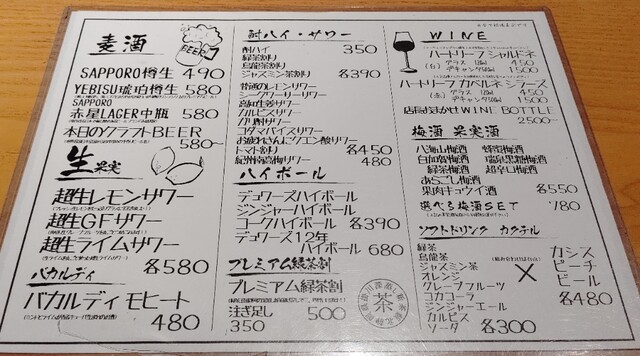 麦酒
BEER
SAPPORO樽生 490
YEBISU琥珀樽生 580
SAPPORO
赤星LAGER中瓶 580
本日のクラフトBEER
580~
生果実
超生レモンサワー
超生GFサワー
超生ライムサワー
各580
バカルディ
バカルディモヒート
480
酎ハイ・サワー
酎ハイ 350
緑茶割り
烏龍茶割り
ジャスミン茶割り 各390
普通のレモンサワー
シークワーサーサワー
高知生姜サワー
カルピスサワー
ガリ酎サワー
コダマバイスサワー
お疲れさんにクエン酸サワー
トマト割り 各450
紀州南高梅サワー 480
ハイボール
デュワーズハイボール
ジンジャーハイボール
コークハイボール 各390
デュワーズ12年
ハイボール 680
プレミアム緑茶割
プレミアム緑茶割
500
注ぎ足し
350
茶
WINE
ハートリーフ シャルドネ
(白) グラス 450
デキャンタ(500ml) 1500
ハートリーフ カベルネ シラーズ
(赤) グラス 450
デキャンタ(500ml) 1500
店長おまかせWINE BOTTLE
2500~
梅酒 果実酒
八海山梅酒 蜂蜜梅酒
白加賀梅酒 瑞泉黒糖梅酒
緑茶梅酒 超辛口梅酒
あらごし梅酒
果肉キュウイ酒 各550
選べる梅酒SET 780
ソフトドリンク カクテル
緑茶
烏龍茶
ジャスミン茶
オレンジ
グレープフルーツ
コカコーラ
ジンジャーエール
カルピス
ソーダ 各300
×
カシス
ピーチ
ビール
各480